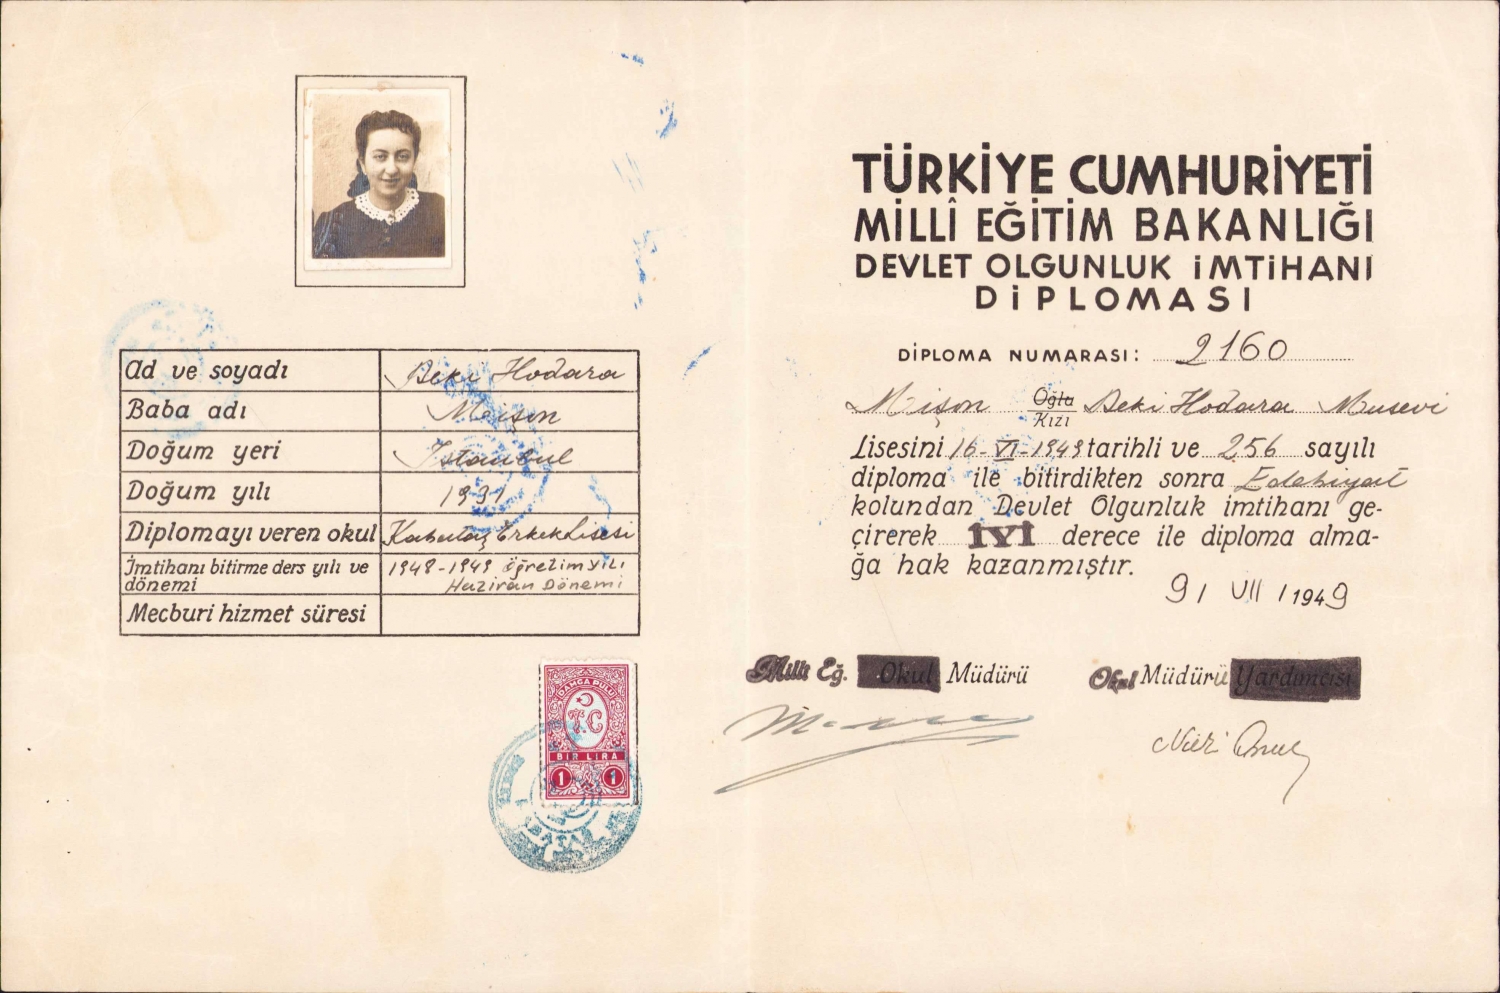 Ad ve soyadı Beki Hodara
Baba adı Mişon
Doğum yeri İstanbul
Doğum yılı 1931
Diplomayı veren okul Kabataş Erkek Lisesi
İmtihanı bitirme ders yılı ve dönemi 1948-1949 Öğretim yılı Haziran Dönemi
Mecburi hizmet süresi
DAMGA PULU
T.C
BİR LİRA
1 1
TÜRKİYE CUMHURİYETİ
MİLLÎ EĞİTİM BAKANLIĞI
DEVLET OLGUNLUK İMTİHANI
DİPLOMASI
DİPLOMA NUMARASI: 2160
Mişon Oğlu Kızı Beki Hodara Musevi
Lisesini 16-VI-1949 tarihli ve 256 sayılı
diploma ile bitirdikten sonra Edebiyat
kolundan Devlet Olgunluk imtihanı ge-
çirerek İYİ derece ile diploma alma-
ğa hak kazanmıştır.
9/ VII /1949
Milli Eğ. Okul Müdürü Okul Müdürü Yardımcısı